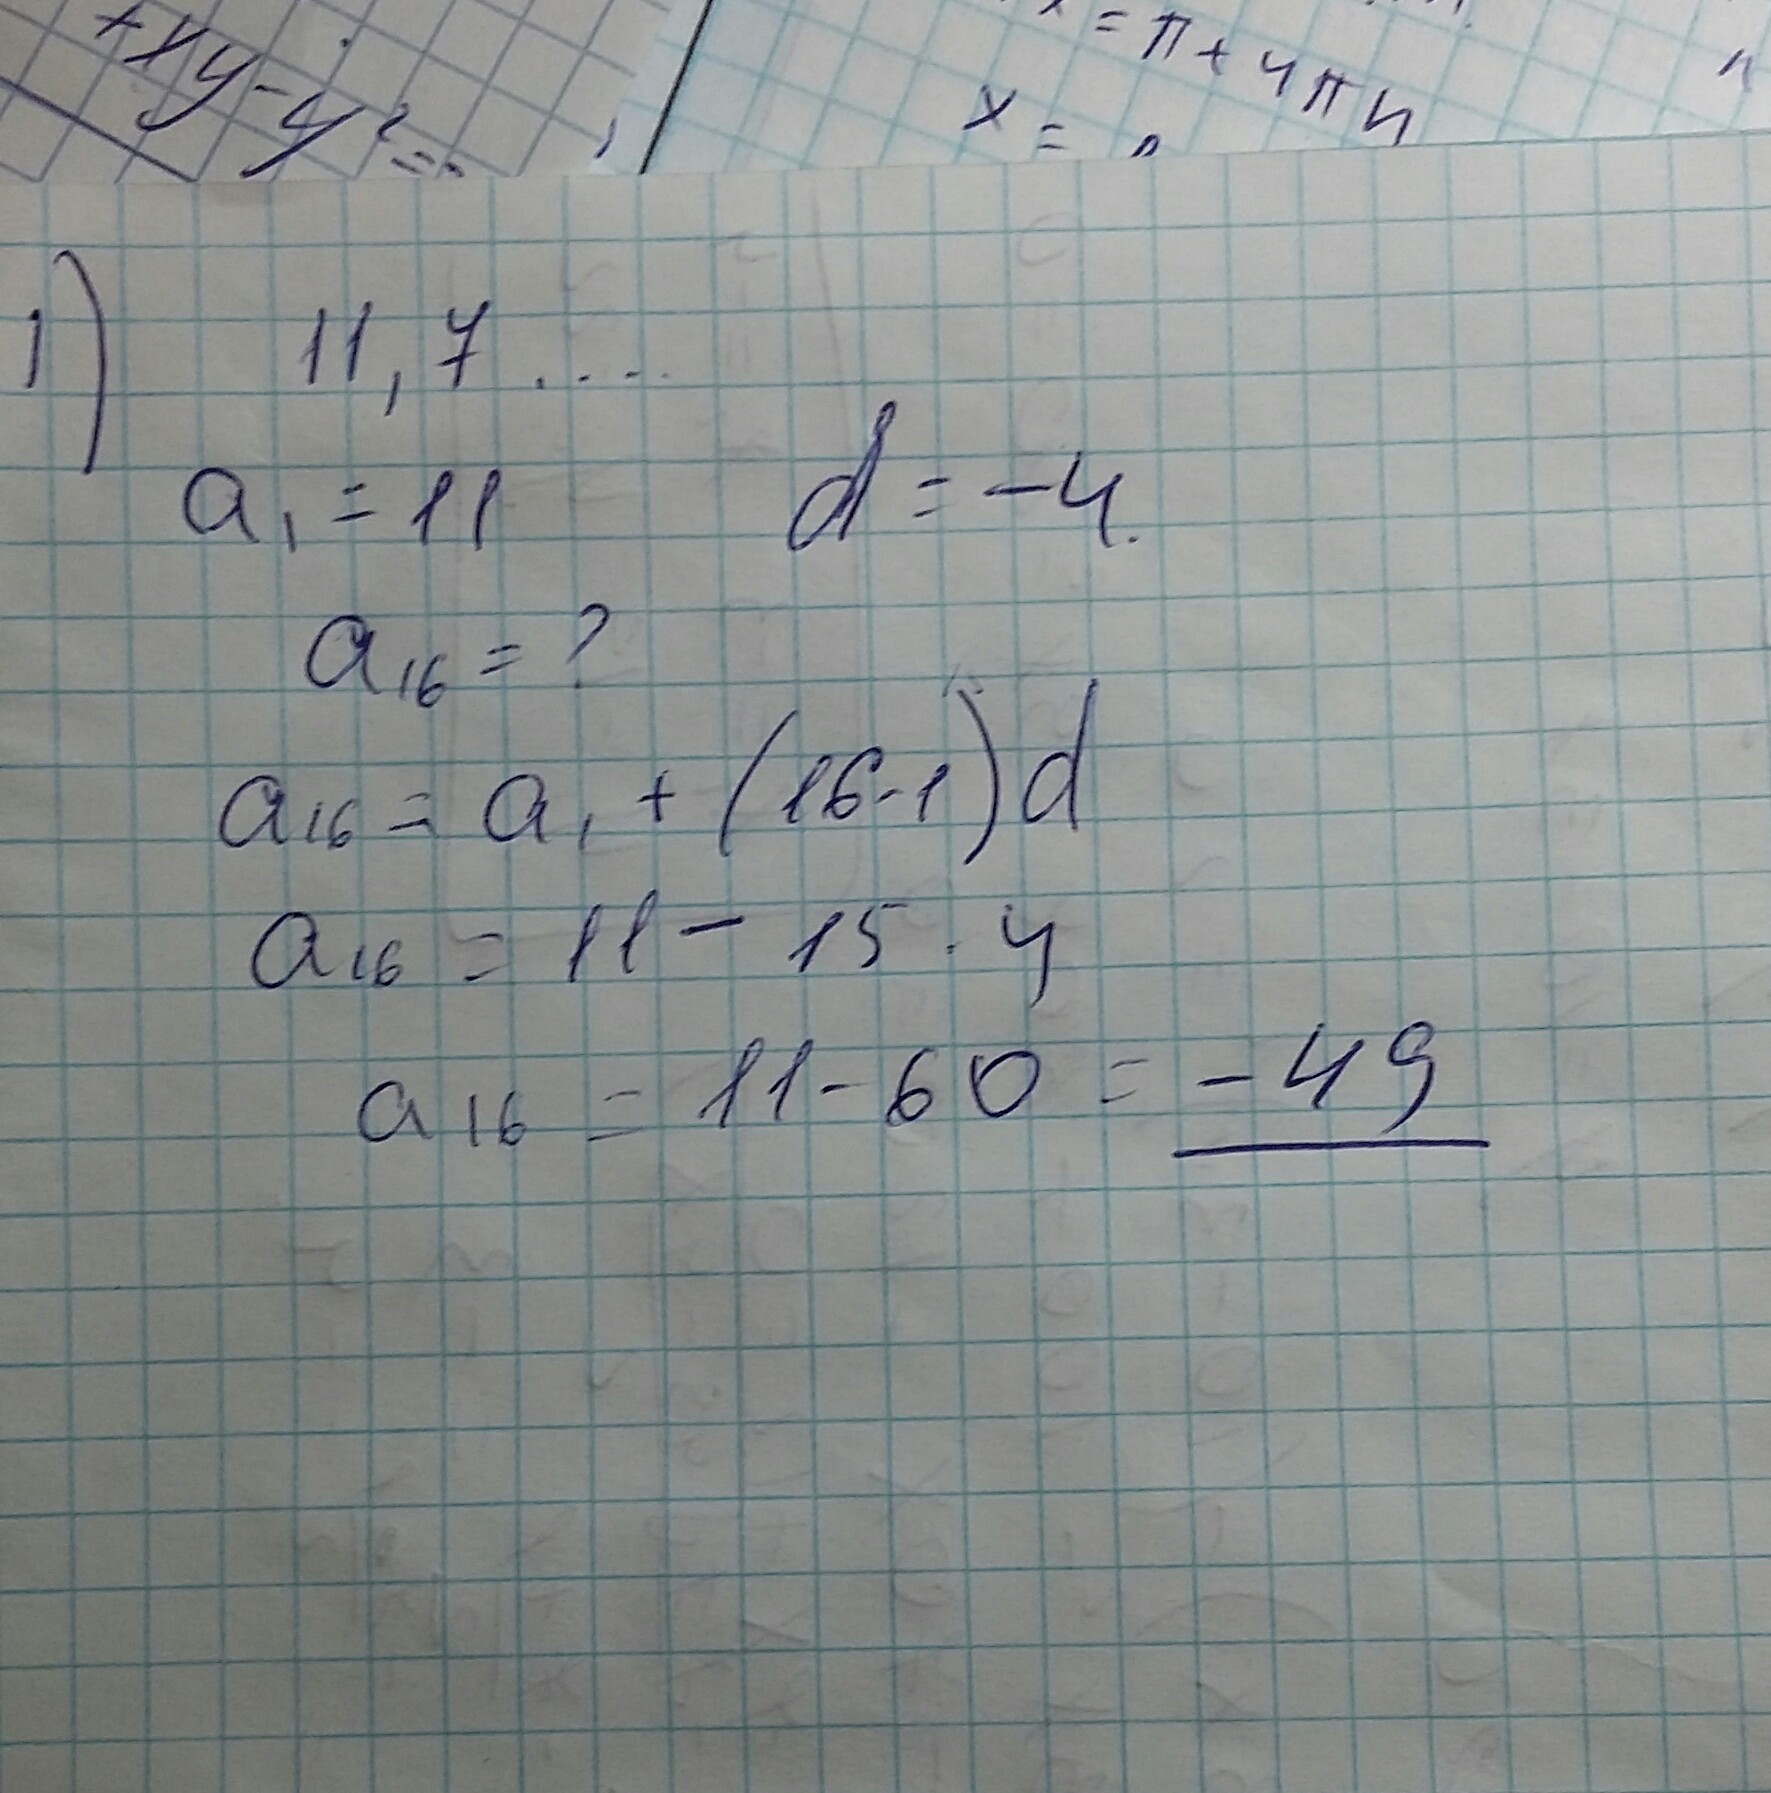 +xy-y²=
x = π + 4πn
x =
1) 11, 7 .....
a₁ = 11 d = -4.
a₁₆ = ?
a₁₆ = a₁ + (16-1)d
a₁₆ = 11 - 15 · 4
a₁₆ = 11 - 60 = -49